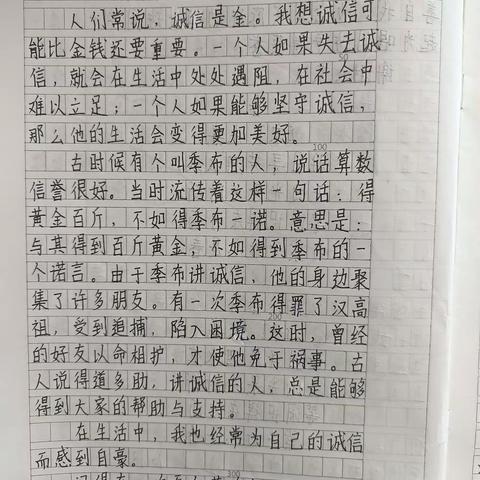 人们常说，诚信是金。我想诚信可
能比金钱还要重要。一个人如果失去诚
信，就会在生活中处处遇阻，在社会中
难以立足；一个人如果能够坚守诚信，
那么他的生活会变得更加美好。
100
古时候有个叫季布的人，说话算数
信誉很好。当时流传着这样一句话：得
黄金百斤，不如得季布一诺。意思是：
与其得到百斤黄金，不如得到季布的一
个诺言。由于季布讲诚信，他的身边聚
集了许多朋友。有一次季布得罪了汉高
200
祖，受到追捕，陷入困境。这时，曾经
的好友以命相护，才使他免于祸事。古
人说得道多助，讲诚信的人，总是能够
得到大家的帮助与支持。
在生活中，我也经常为自己的诚信
而感到自豪。
300